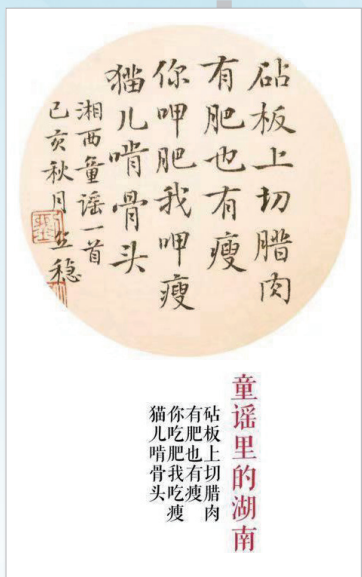 砧板上切腊肉
有肥也有瘦
你呷肥我呷瘦
猫儿啃骨头
湘西童谣一首
己亥秋月
童谣里的湖南
砧板上切腊肉
有肥也有瘦
你吃肥我吃瘦
猫儿啃骨头